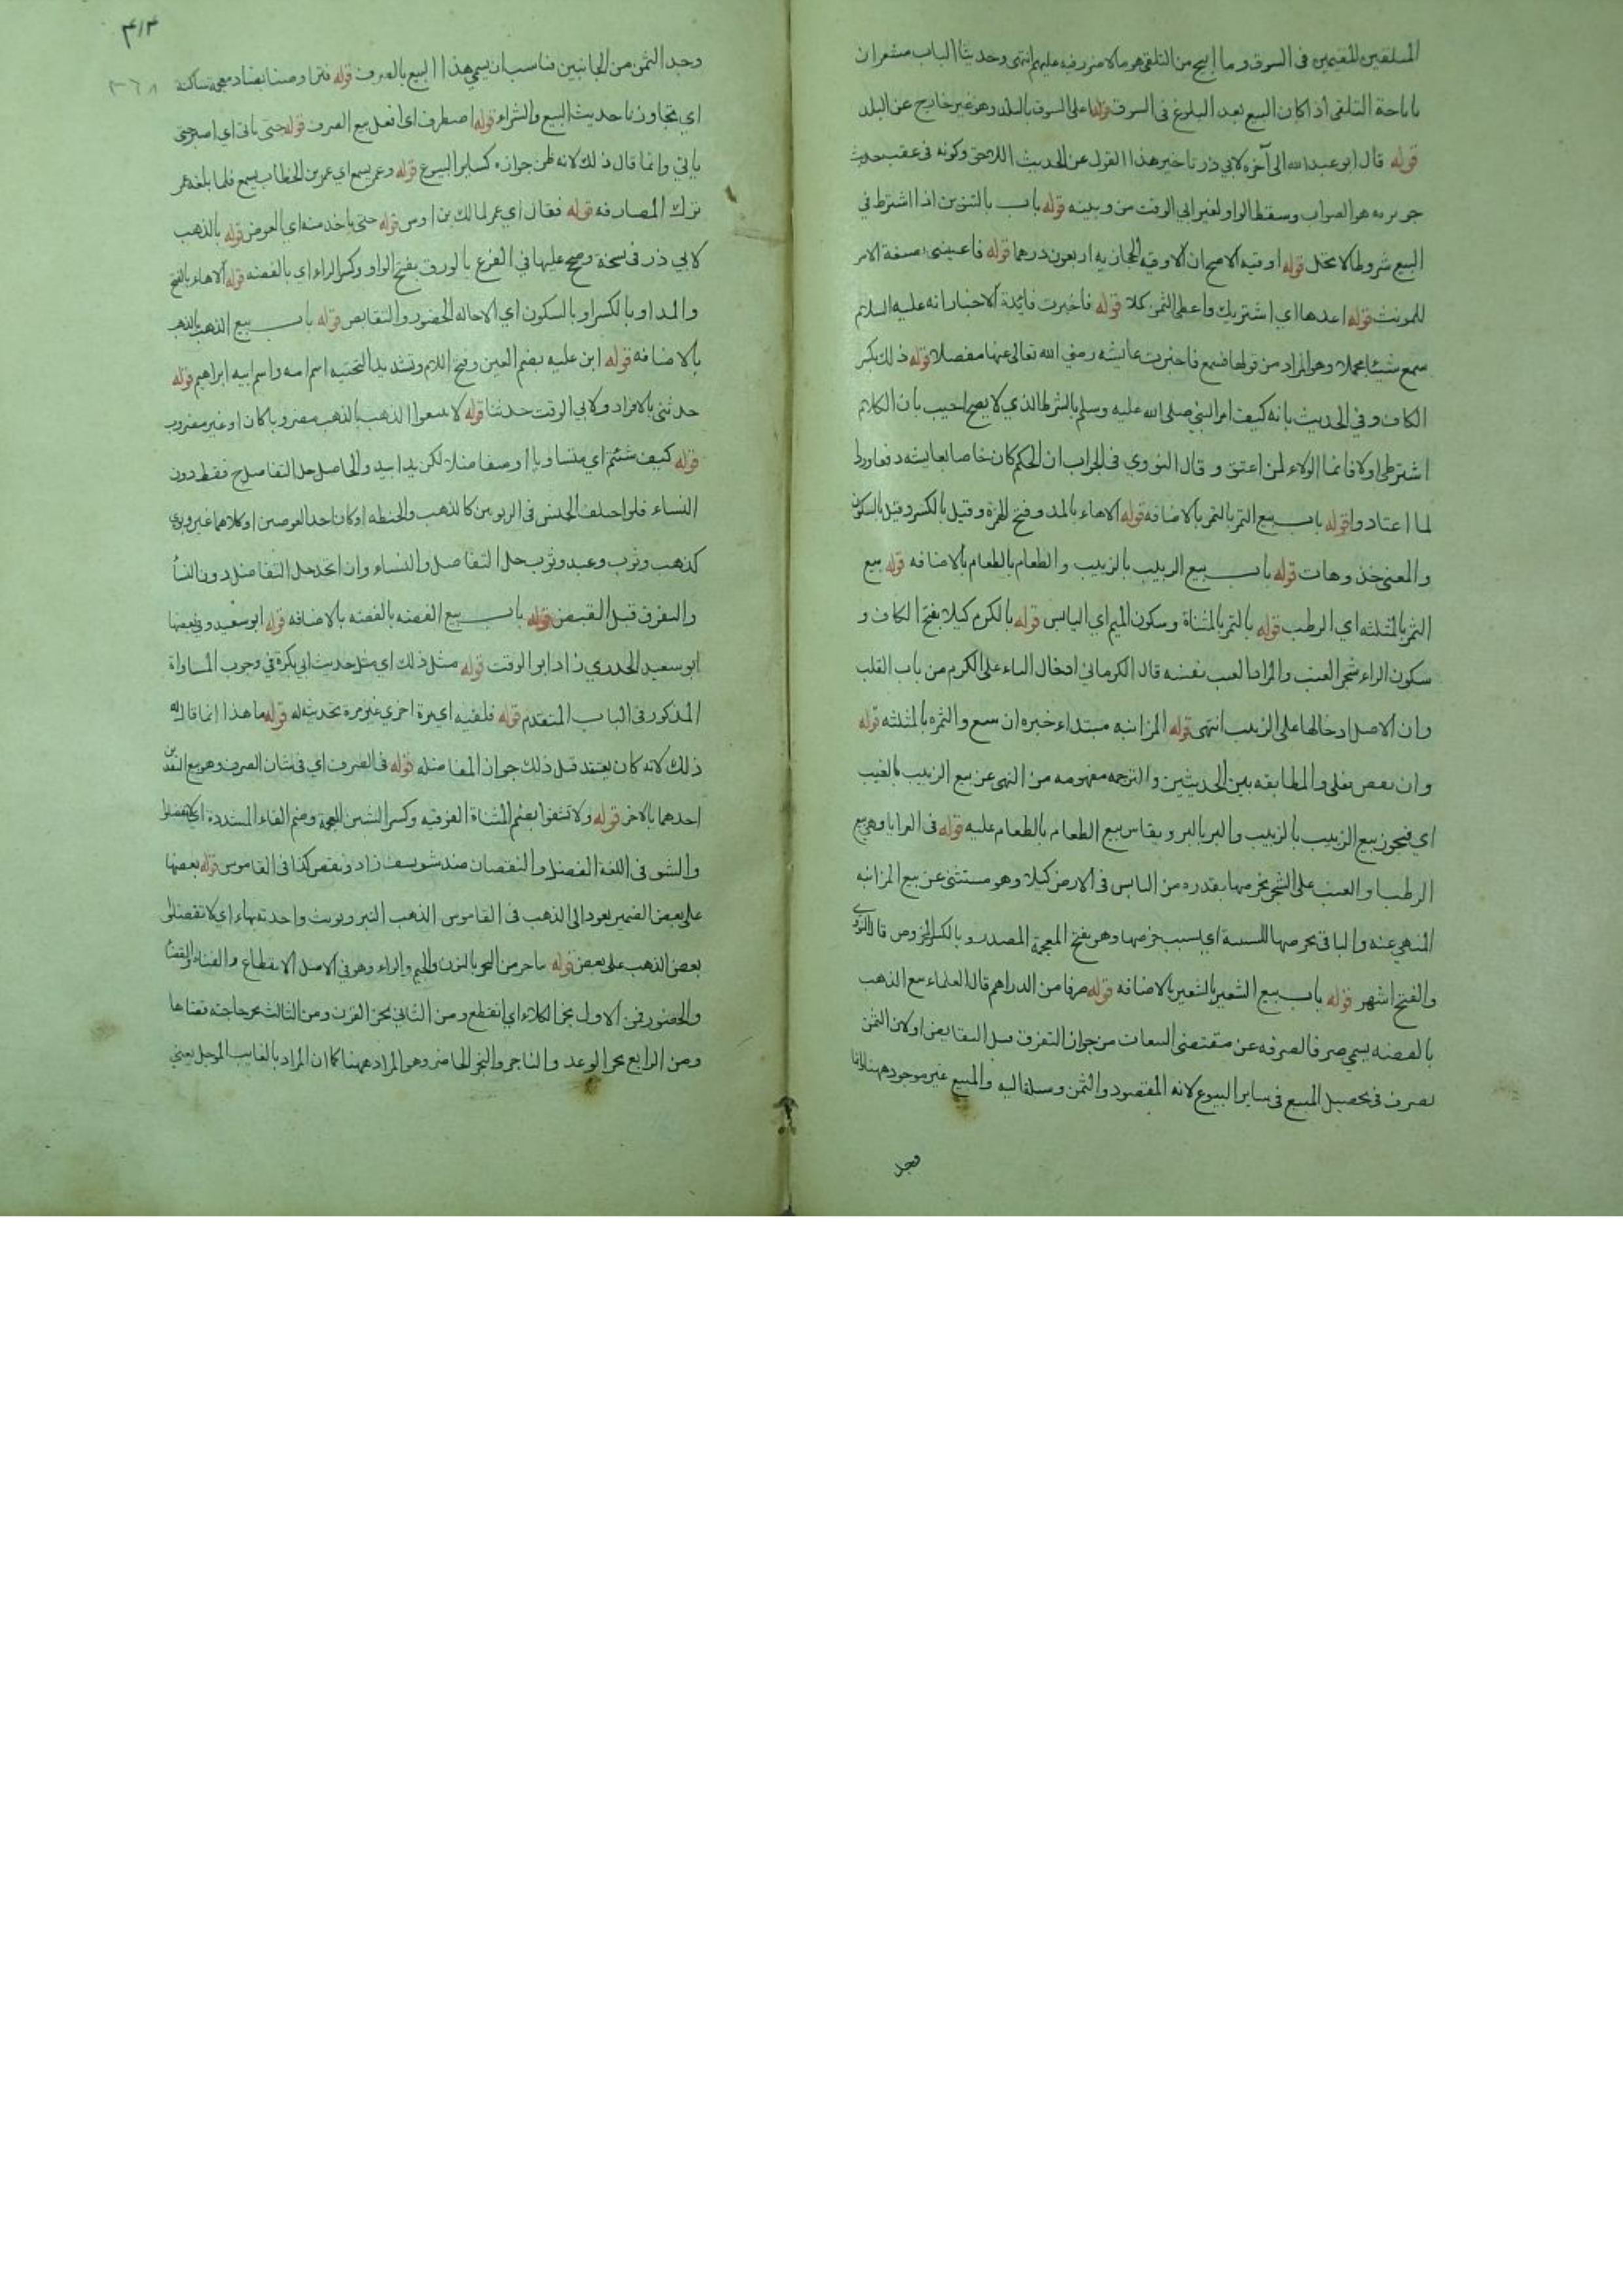 المتلقين المقيمين في السوق وما ابيح من التلقي هو ما لا ضرر فيه عليهم انتهى وحديثا الباب مشعران
باباحة التلقي اذا كان البيع بعد البلوغ في السوق قوله اعلى السوق بالبلد وهو غير خارج عن البلد
قوله قال ابو عبد الله الى آخره لابي ذر تاخير هذا القول عن الحديث اللاحق وكونه في عقب حديث
جويريه هو الصواب وسقط الواو لغير ابي الوقت من وبينه قوله باب بالتنوين اذا اشترط في
البيع شروطا لا تحل قوله اوقيه الاصح ان الاوقيه الحجازيه اربعون درهما قوله فاعينني بصيغة الامر
للمونث قوله اعدها اي اشتريك واعطي الثمن كلا قوله فاخبرت فائدة الاخبار انه عليه السلام
سمع شيئا مجملا وهو المراد من قولها فسمع فاخبرت عائشه رضي الله تعالى عنها مفصلا قوله ذلك بكسر
الكاف وفي الحديث بانه كيف امر النبي صلى الله عليه وسلم بالشرط الذي لا يصح اجيب بان الكلام
اشترطي اولا فانما الولاء لمن اعتق وقال النووي في الجواب ان الحكم كان خاصا بعايشه دفعا ورد
لما اعتادوا قوله باب بيع التمر بالتمر بالاضافه قوله الا هاء بالمد وفتح الهمزة وقيل بالكسر وقيل بالسكون
والمعنى خذ وهات قوله باب بيع الزبيب بالزبيب والطعام بالطعام بالاضافه قوله بيع
الثمر بالمثلثه اي الرطب قوله بالتمر بالمثناة وسكون الميم اي اليابس قوله بالكرم كيلا بفتح الكاف و
سكون الراء شجر العنب والمراد العنب نفسه قال الكرماني ادخال الباء على الكرم من باب القلب
وان الاصل ادخالها على الزبيب انتهى قوله المزابنه مبتداء خبره ان بيع والثمره بالمثلثه قوله
وان نقص فعلي والمطابقه بين الحديثين والترجمه مفهومه من النهي عن بيع الزبيب بالعنب
اي فيجوز بيع الزبيب بالزبيب والبر بالبر ويقاس بيع الطعام بالطعام عليه قوله في العرايا وهو بيع
الرطب او العنب على الشجر بخرصها بقدره من اليابس في الارض كيلا وهو مستثنى عن بيع المزابنه
المنهي عنه والبا في بخرصها للسببية اي بسبب خرصها وهو بفتح المعجمة المصدر وبالكسر المخروص قال النووي
والفتح اشهر قوله باب بيع الشعير بالشعير بالاضافه قوله صرفا من الدراهم قال العلماء بيع الذهب
بالفضه يسمى صرفا لصرفه عن مقتضى البيعات من جواز التفرق قبل التقابض او لان الثمن
يصرف في تحصيل المبيع في ساير البيوع لانه المقصود والثمن وسيلة اليه والمبيع غير موجود ههنا وانما
وجد
٤١٣
٣٦٨
وجد الثمن من الجانبين فناسب ان يسمى هذا البيع بالصرف قوله فتراوضنا بضاد معجمة ساكنة
اي تجاوزنا حديث البيع والشراء قوله اصطرف اي افعل بيع الصرف قوله حتى ياتي اي اصبر حتى
ياتي وانما قال ذلك لانه ظن جوازه كساير البيوع قوله وعمر يسمع اي عمر بن الخطاب يسمع فلما بلغه عمر
ترك المصارفه قوله فقال اي عمر لمالك بن اوس قوله حتى ياخذ منه اي العوض قوله بالذهب
لابي ذر في نسخة وصح عليها في الفرع بالورق بفتح الواو وكسر الراء اي بالفضه قوله الا هاء بالفتح
والمد او بالكسر او بالسكون اي الا حاله الحضور والتقابض قوله باب بيع الذهب بالذهب
بالاضافه قوله ابن عليه بضم العين وفتح اللام وتشديد التحتيه اسم امه واسم ابيه ابراهيم قوله
حدثني بالافراد ولابي الوقت حدثنا قوله لا تبيعوا الذهب بالذهب مضروبا كان او غير مضروب
قوله كيف شئتم اي متساويا او متفاضلا لكن يدا بيد والحاصل حل التفاضل فقط دون
النساء فلو اختلف الجنس في الربويين كالذهب والحنطه او كان احد العوضين او كلاهما غير ربوي
كذهب وثوب وعبد وثوب حل التفاضل والنساء وان اتحد حل التفاضل دون النسأ
والتفرق قبل القبض قوله باب بيع الفضه بالفضه بالاضافه قوله ابو سعيد وفي بعضها
ابو سعيد الخدري زاد ابو الوقت قوله مثل ذلك اي مثل حديث ابي بكرة في وجوب المساواة
المذكور في الباب المتقدم قوله فلقيه اي مرة اخرى غير مرة تحديثه له قوله ما هذا انما قال له
ذلك لانه كان يعتقد قبل ذلك جواز المفاضله قوله في الصرف اي في شان الصرف وهو بيع النقدين
احدهما بالاخر قوله ولا تشفوا بضم المثناة الفوقيه وكسر الشين المعجمة وضم الفاء المشددة اي لا تفضلوا
والشف في اللغة الفضل والنقصان ضد شف يشف زاد ونقص كذا في القاموس قوله بعضها
على بعض الضمير يعود الى الذهب في القاموس الذهب التبر ويونث واحدته بهاء اي لا تفضلوا
بعض الذهب على بعض قوله بناجز من النجز بالنون والجيم والزاء وهو في الاصل الانقطاع والفناء والقضا
والحضور فمن الاول نجز الكلاء اي انقطع ومن الثاني نجز القرن ومن الثالث نجز حاجته قضاها
ومن الرابع نجز الوعد والناجز والنجز الحاضر وهو المراد ههنا كما ان المراد بالغايب الموجل يعني